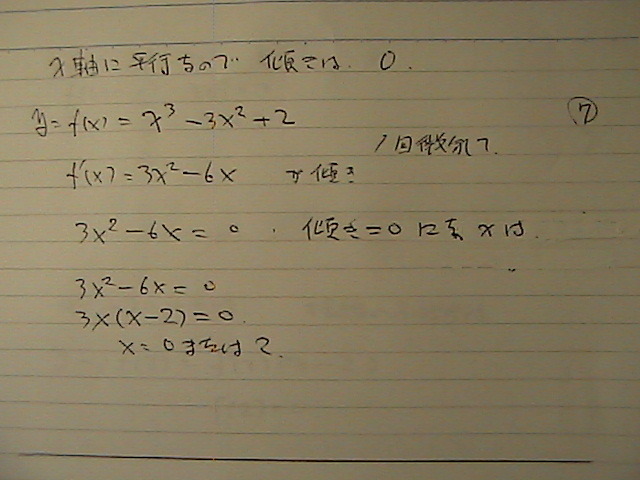 x軸に平行なので 傾きは. 0.
y=f(x)=x³-3x²+2 ⑦
1回微分して.
f'(x)=3x²-6x が傾き
3x²-6x=0. 傾き=0になるxは.
3x²-6x=0
3x(x-2)=0.
x=0または2.